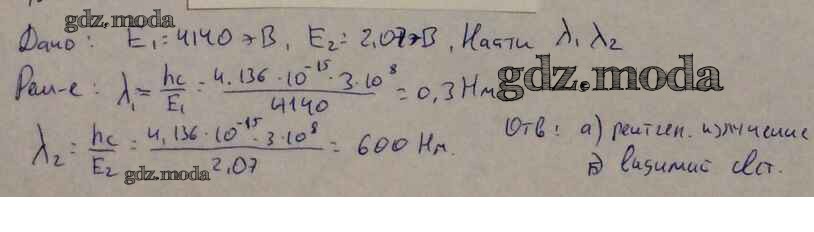 gdz.moda
Дано: E₁=4140 эВ, E₂=2,07 эВ, Найти λ₁ λ₂
Реш-е: λ₁ = hc/E₁ = 4.136·10⁻¹⁵·3·10⁸/4140 = 0,3 Нм
gdz.moda
λ₂ = hc/E₂ = 4,136·10⁻¹⁵·3·10⁸/2,07 = 600 Нм.
gdz.moda
Отв: а) рентген. излучение
в) видимий свет.